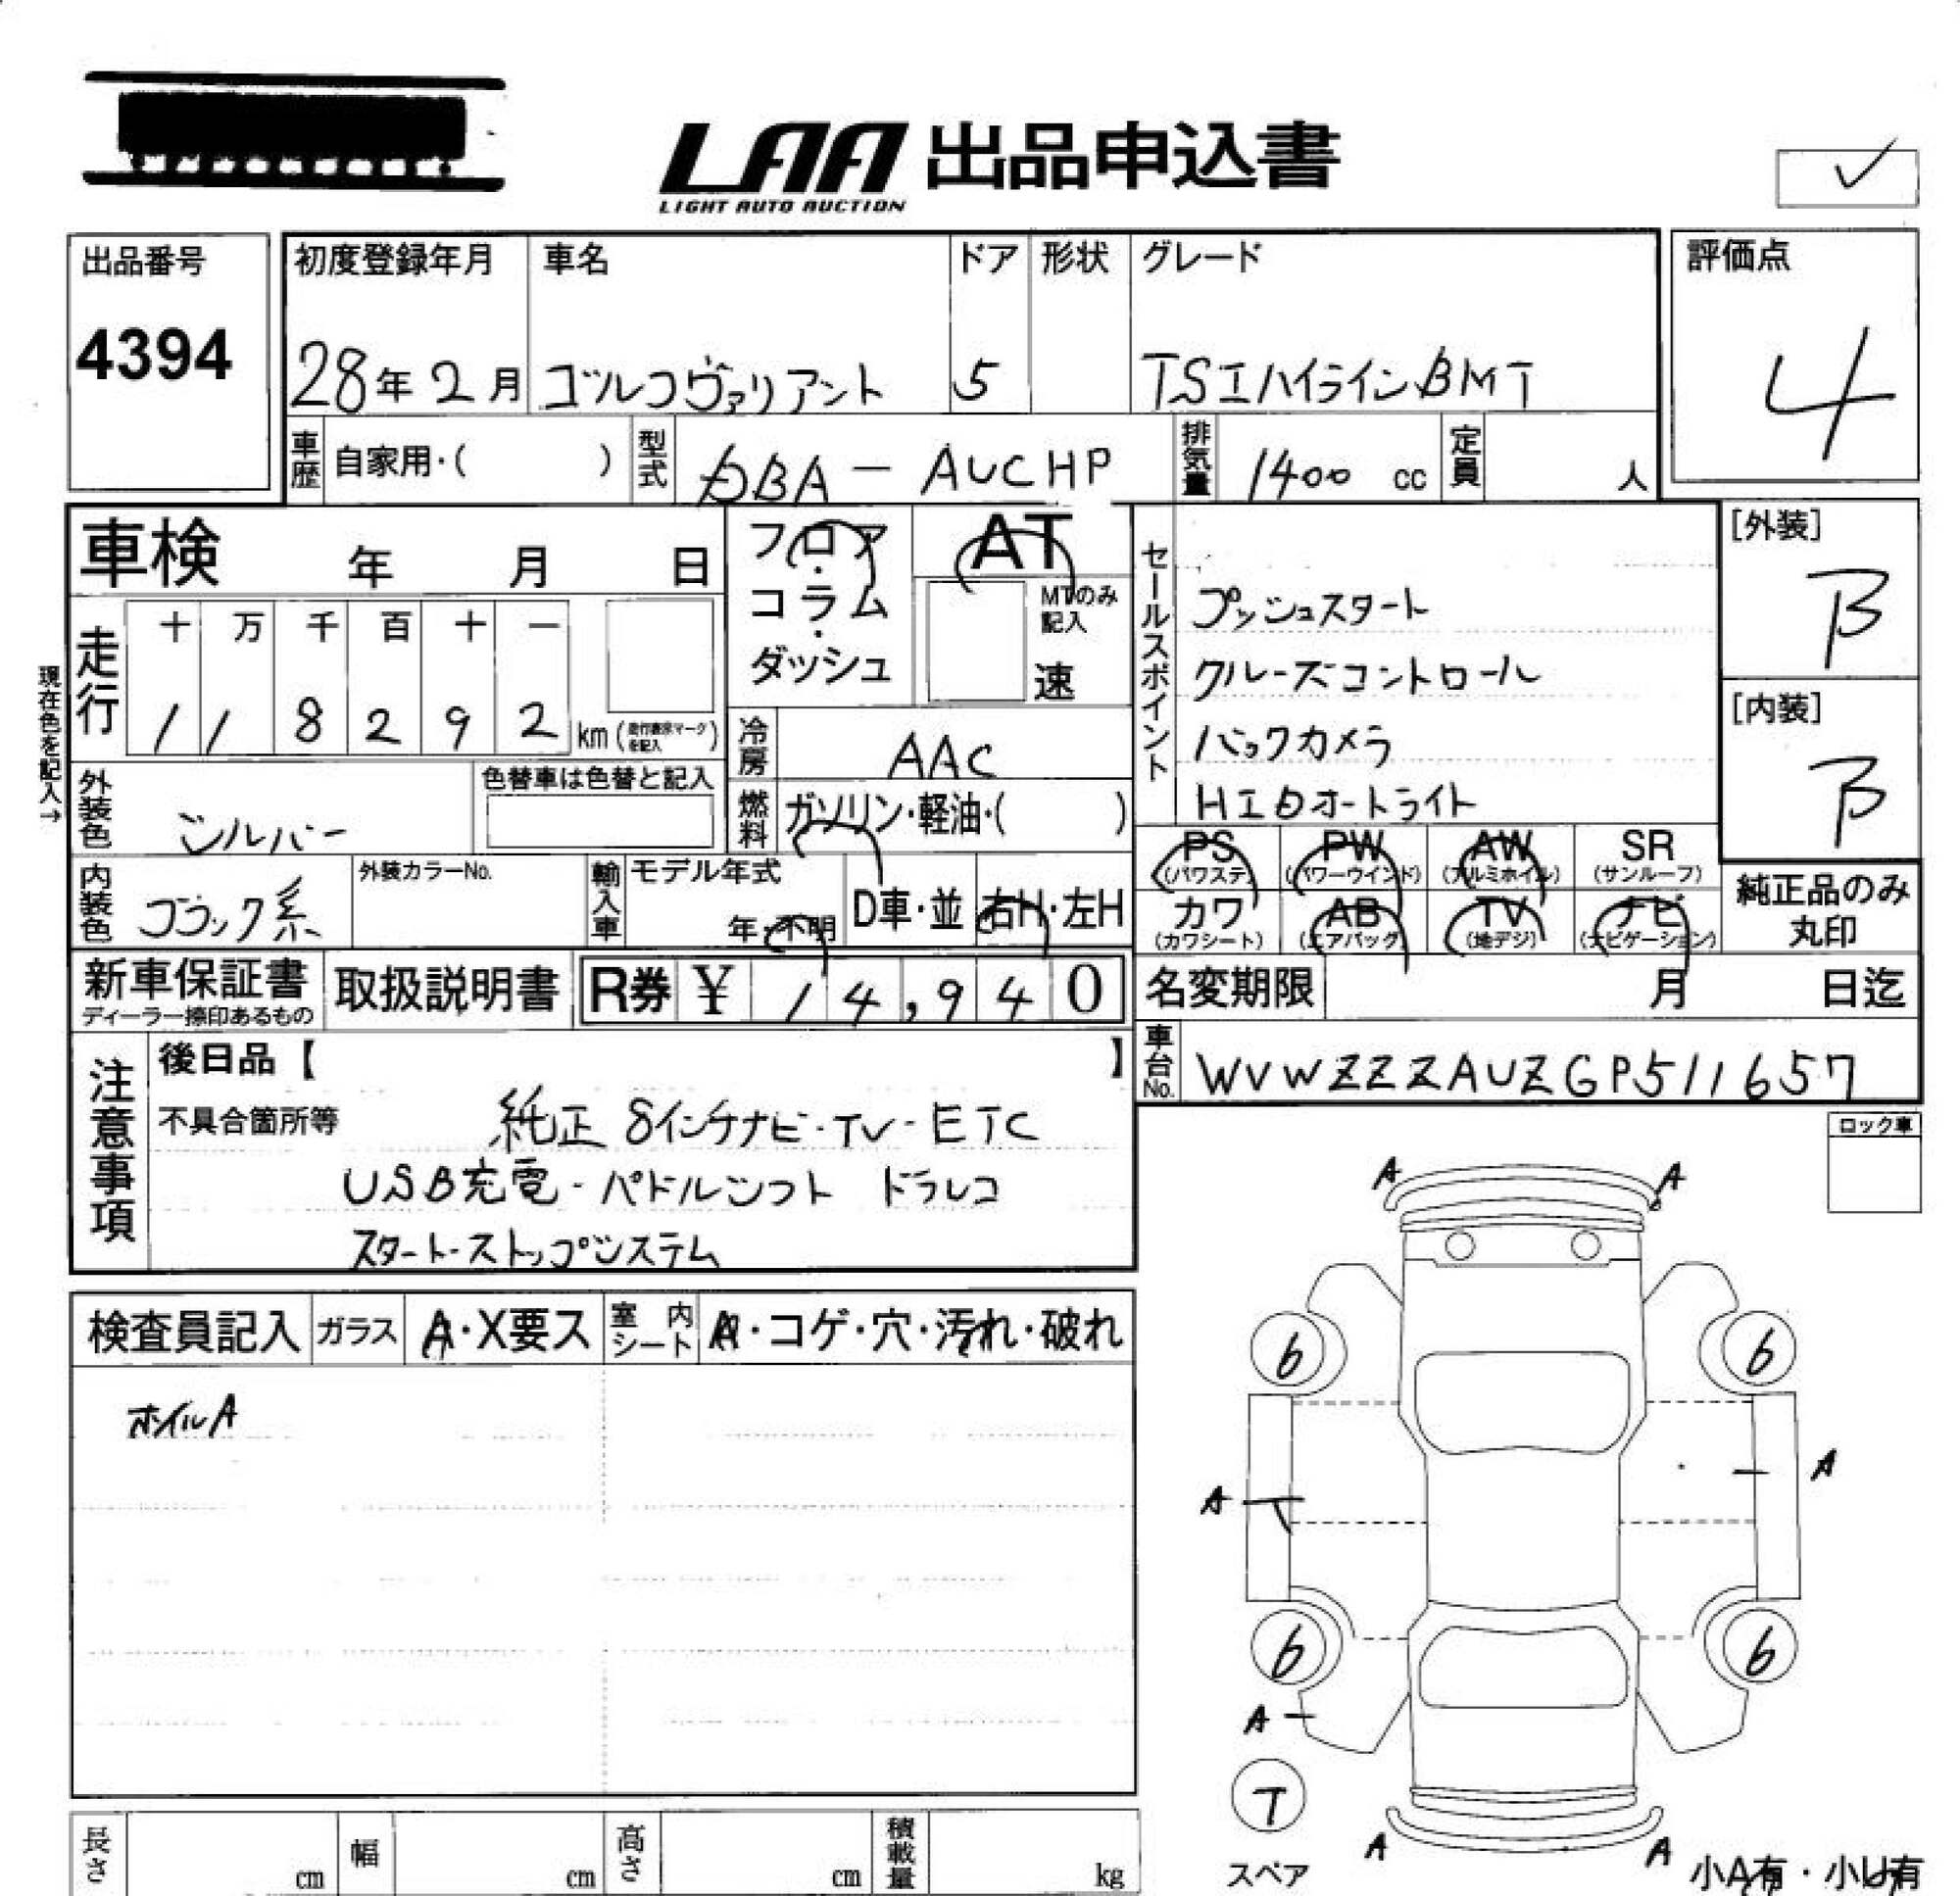 LAA 出品申込書
LIGHT AUTO AUCTION
出品番号
4394
初度登録年月 車名 ドア 形状 グレード
28年2月 ゴルフヴァリアント 5 TSIハイラインBMT
評価点
4
車歴 自家用・( ) 型式 DBA-AUCHP 排気量 1400 cc 定員 人
車検 年 月 日
フロア・コラム・ダッシュ
AT
MTのみ記入
速
セールスポイント
プッシュスタート
クルーズコントロール
バックカメラ
HIDオートライト
[外装]
B
[内装]
B
現在色を記入→
走行 十 万 千 百 十 一
1 1 8 2 9 2 km (走行表示マークを記入)
冷房 AAC
外装色 シルバー 色替車は色替と記入
燃料 ガソリン・軽油・( )
内装色 ブラック系 外装カラーNo. 輸入車 モデル年式 年・不明 D車・並 右H・左H
PS (パワステ) PW (パワーウインド) AW (アルミホイル) SR (サンルーフ)
カワ (カワシート) AB (エアバッグ) TV (地デジ) ナビ (ナビゲーション)
純正品のみ丸印
新車保証書 ディーラー捺印あるもの 取扱説明書 R券 ¥ 14,940
名変期限 月 日迄
車台No. WVWZZZAUZGP511657
注意事項
後日品【 】
不具合箇所等 純正 8インチナビ・TV・ETC
USB充電・パドルシフト ドラレコ
スタート・ストップシステム
ロック車
検査員記入 ガラス A・X要ス 室内シート A・コゲ・穴・汚れ・破れ
ホイルA
A A
6 6
A A
6 6
A
T
スペア
A A
小A有・小U有
長さ cm 幅 cm 高さ cm 積載量 kg